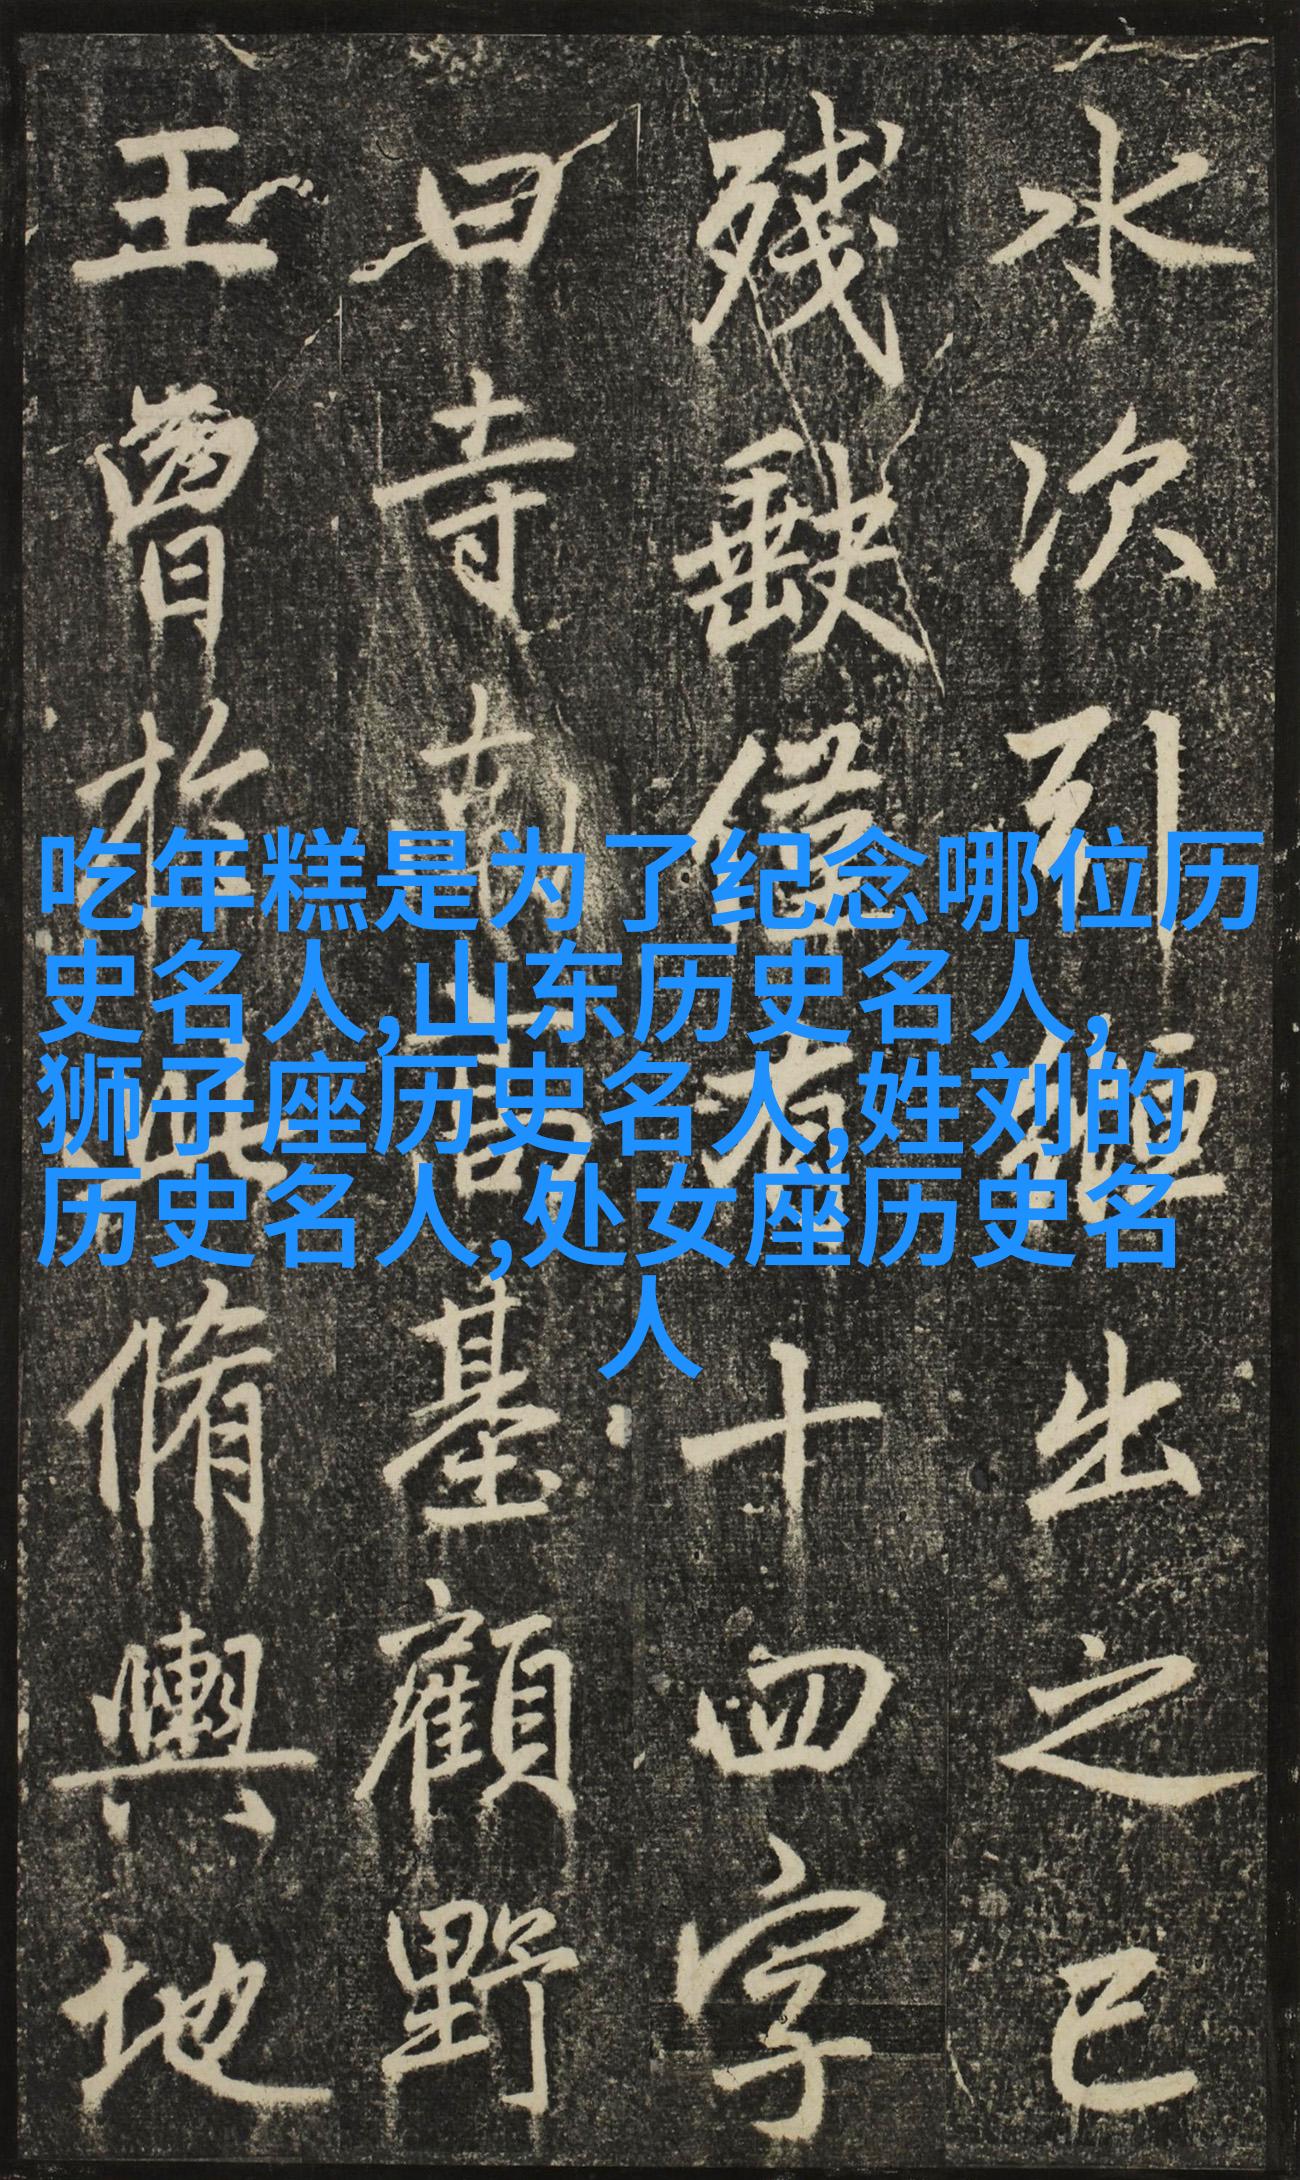 水次引出之已
殘缺僅有十四字
曰寺南高基顧野
王曾於此脩輿地
吃年糕是为了纪念哪位历
史名人,山东历史名人,
狮子座历史名人,姓刘的
历史名人,处女座历史名
人